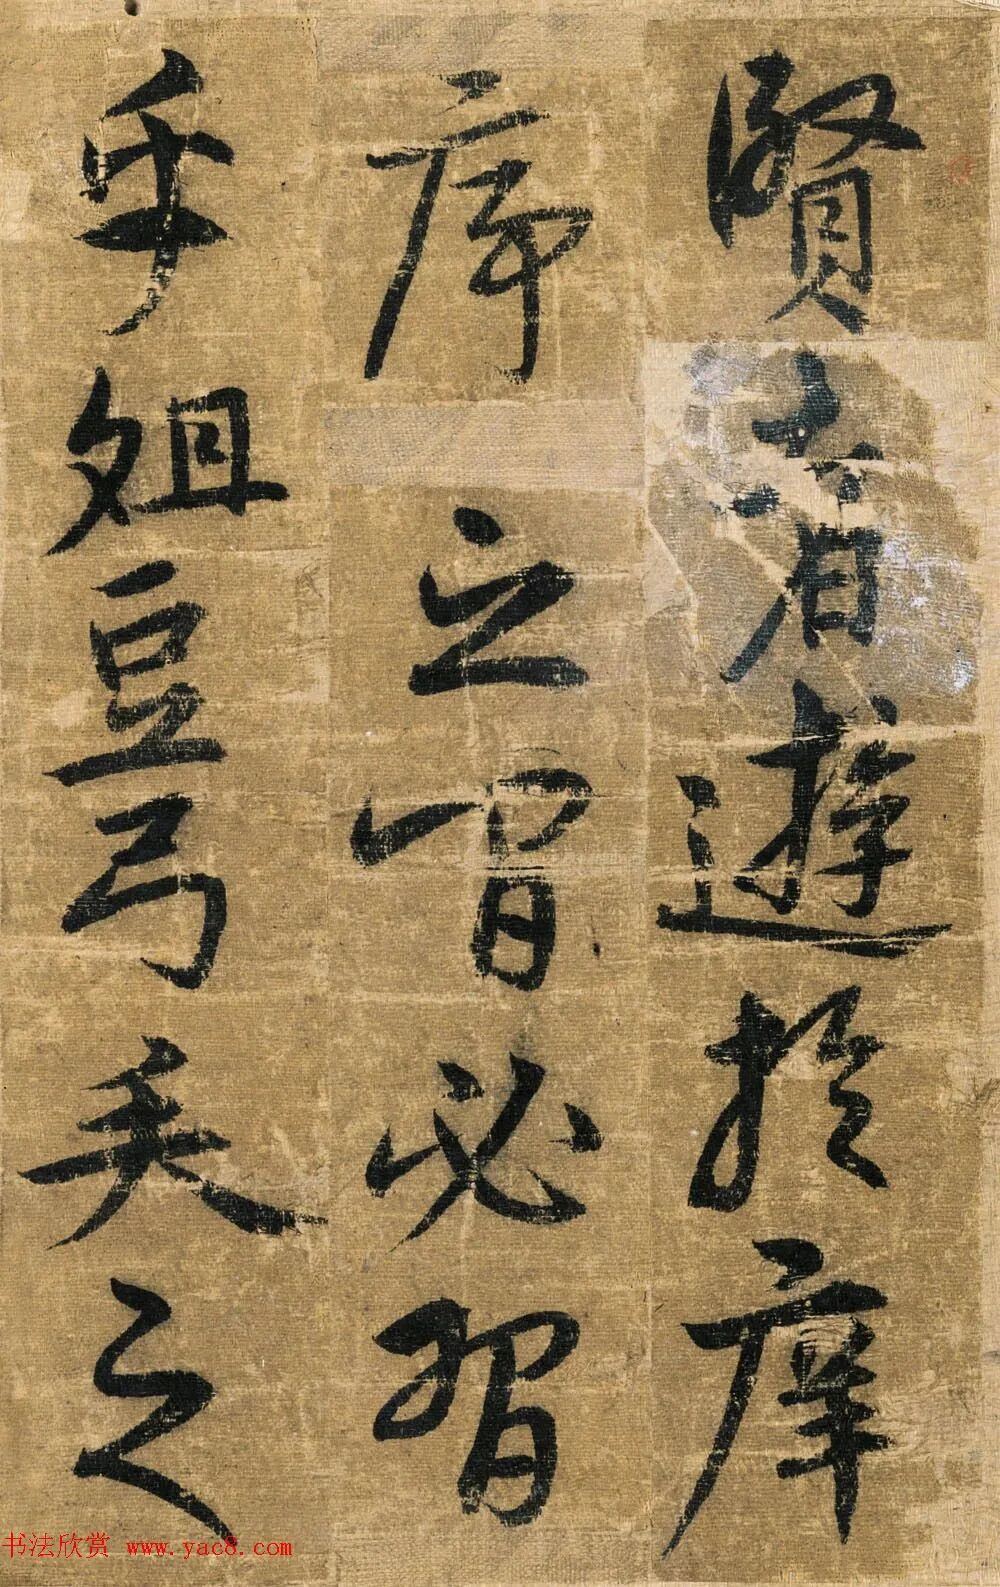 賢者遊於庠
序之間必習
乎俎豆弓矢之
书法欣赏 www.yac8.com